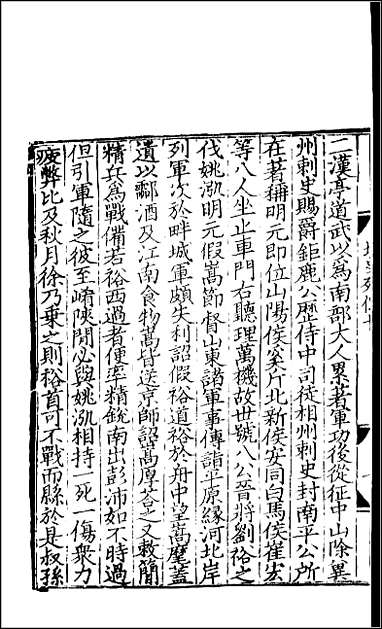 二漢亭道武以爲南部大人累著軍功後從征中山除異
州刺史賜爵鉅鹿公歷侍中司徒相州刺史封南平公所
在著稱明元即位山陽侯奚斤北新侯安同白馬侯崔宏
等八人坐止車門右聽理萬機故世號八公晉將劉裕之
伐姚泓明元假嵩節督山東諸軍事傳詣平原緣河北岸
列軍次於畔城軍頗失利詔假裕道裕於舟中望嵩麾蓋
遺以酃酒及江南食物嵩皆送京師詔嵩厚荅之又敕簡
精兵爲戰備若裕西過者便率精銳南出彭沛如不時過
但引軍隨之彼至崤陝閒必與姚泓相持一死一傷衆力
疲弊比及秋月徐乃乗之則裕首可不戰而縣於是叔孫